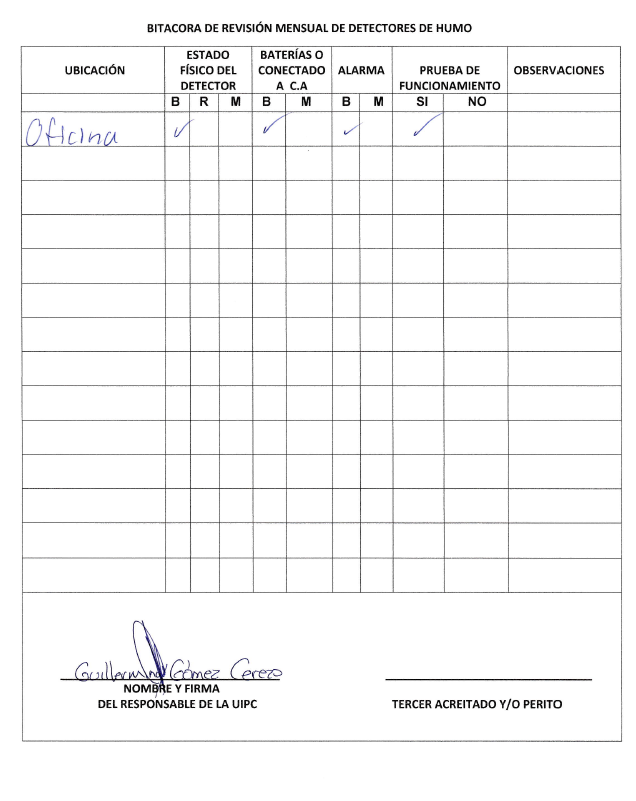 BITACORA DE REVISIÓN MENSUAL DE DETECTORES DE HUMO
UBICACIÓN
ESTADO
FÍSICO DEL
DETECTOR
BATERÍAS O
CONECTADO
A C.A
ALARMA
PRUEBA DE
FUNCIONAMIENTO
OBSERVACIONES
B R M B M B M SI NO
Oficina ✓ ✓ ✓ ✓
Guillermo Gómez Cerezo
NOMBRE Y FIRMA
DEL RESPONSABLE DE LA UIPC
TERCER ACREDITADO Y/O PERITO